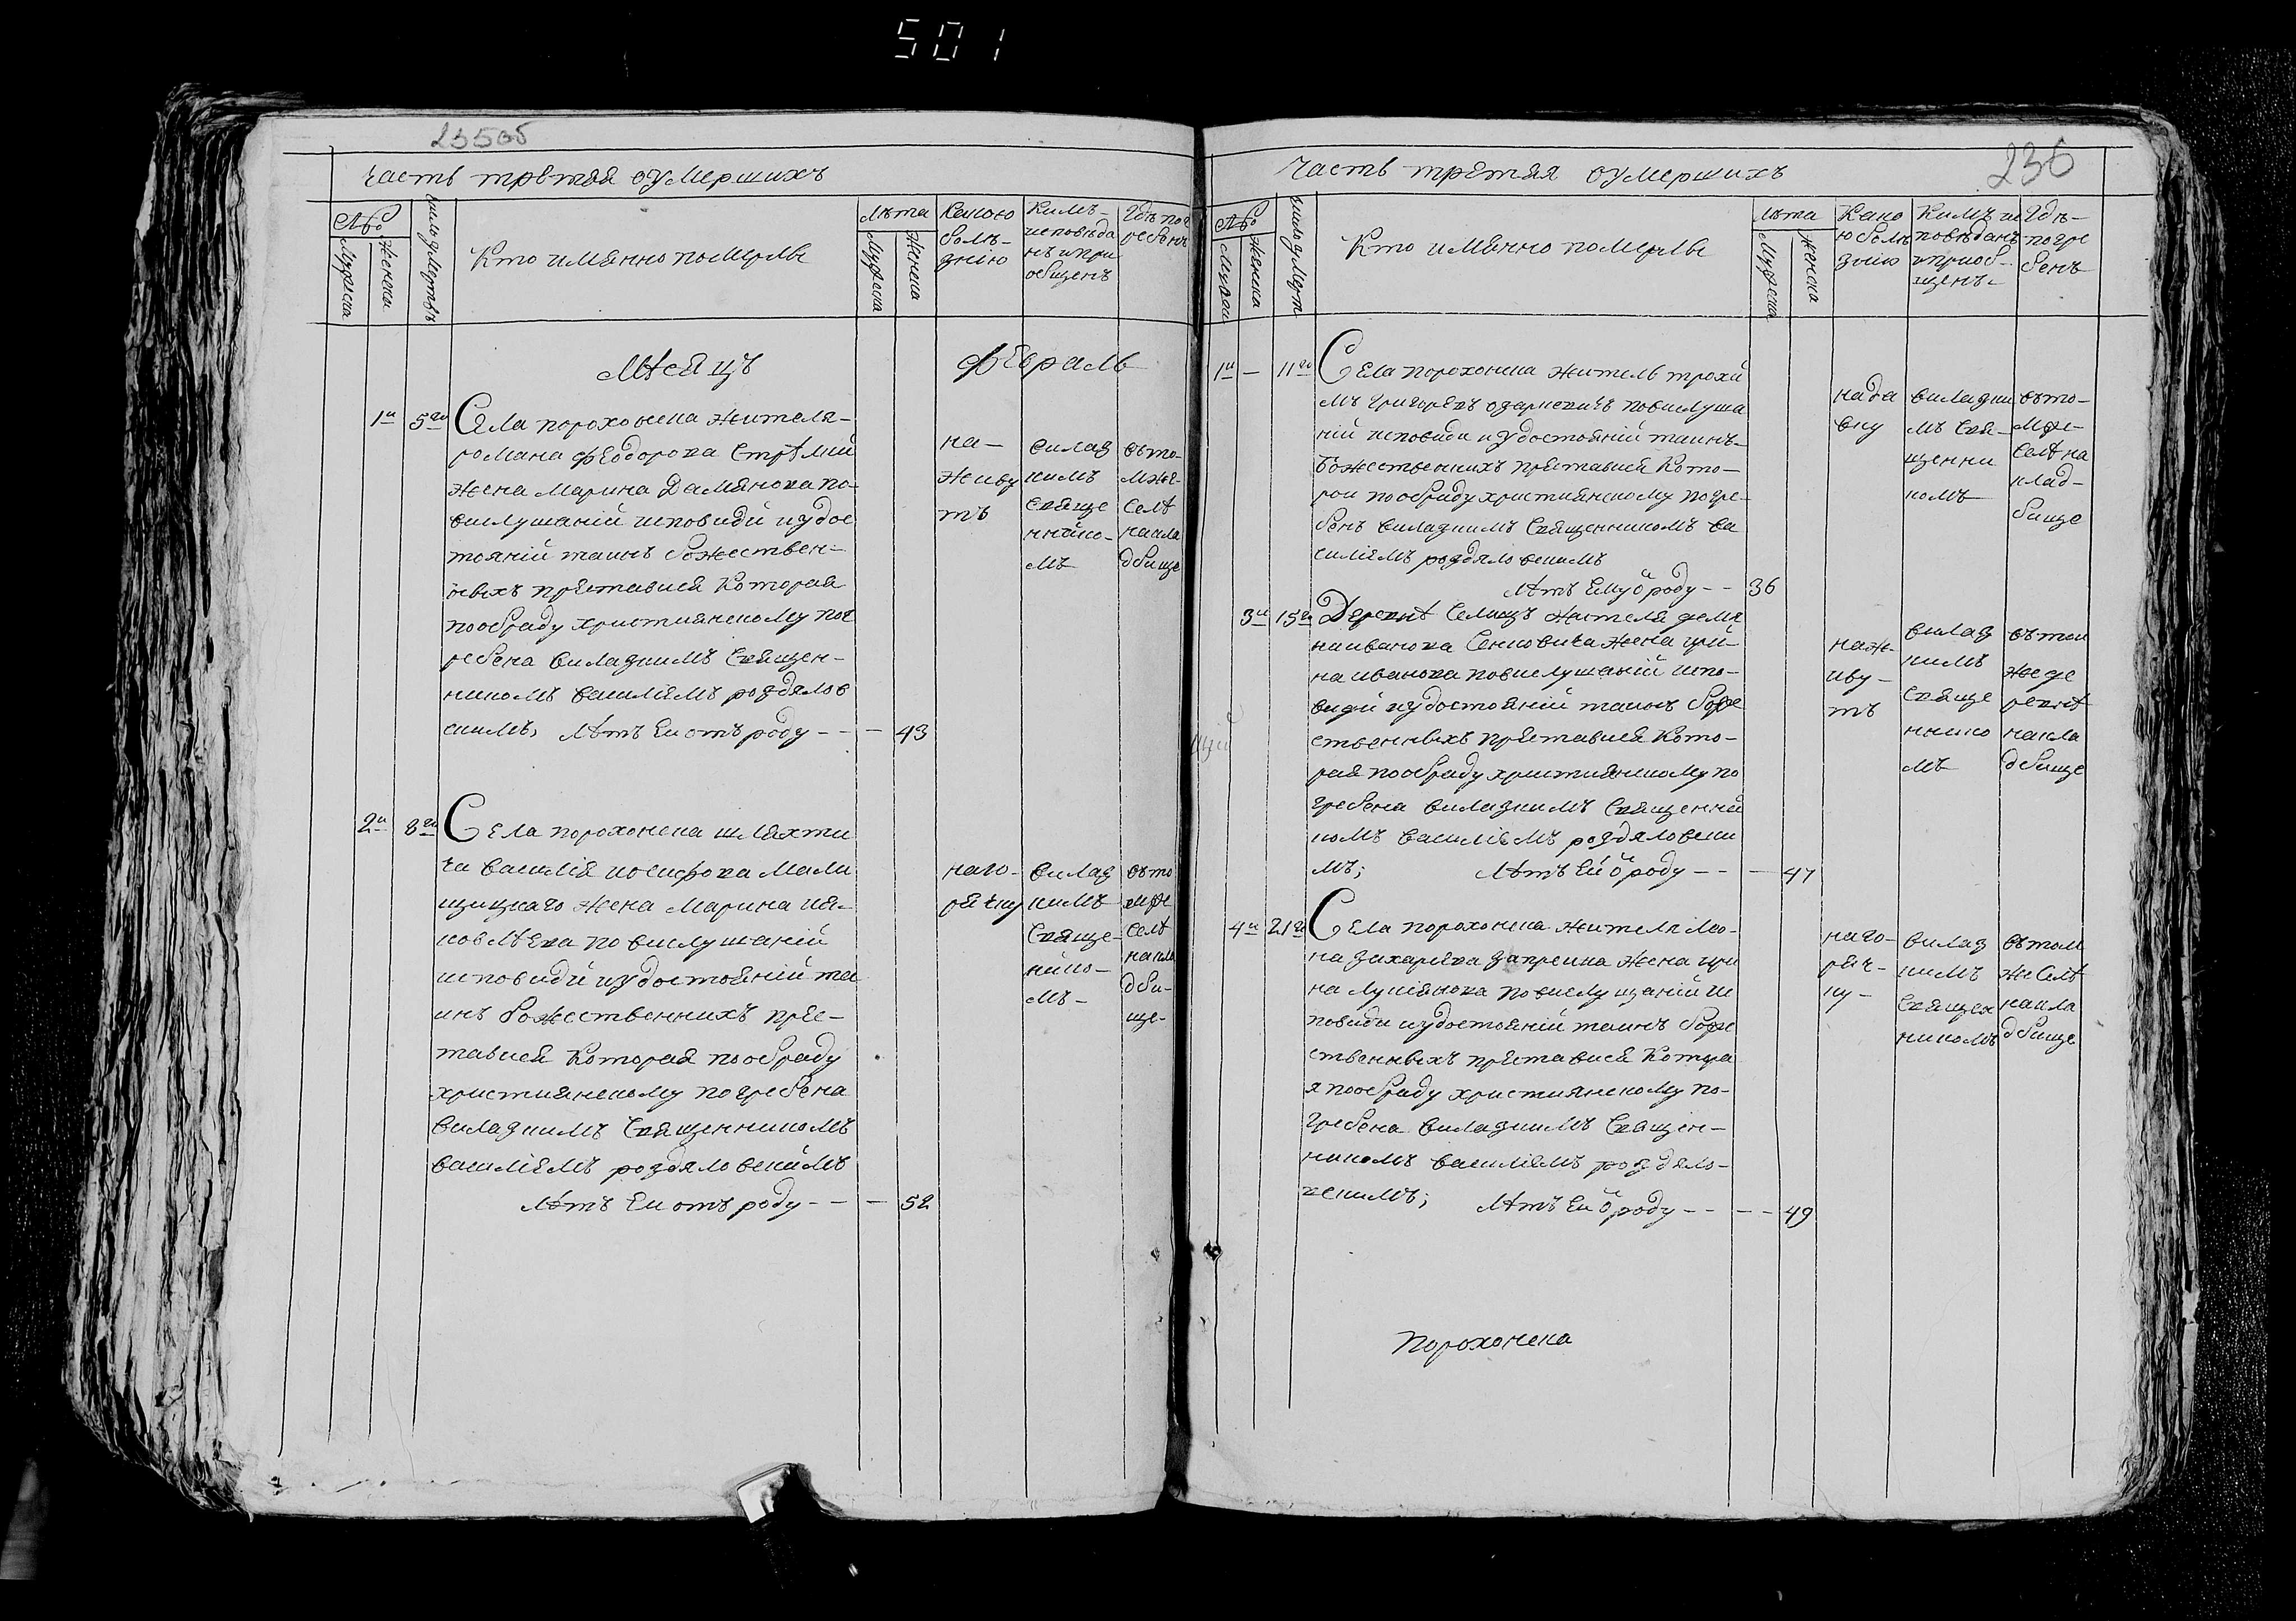 501
235об
часть третяя оумершихъ
№
Мужеска
Женска
число умертвъ
Кто имянно померлы
лѣта
Мужеска
Женска
Какою
болѣ-
знію
Кимъ-
исповѣда
нъ и при
общенъ
Гдѣ пог
ребенъ
Мѣсяцъ
Февраль
1а
5го
Села порохонска жителя-
романа феодорова Стрѣлий
жена марина Дамянова по-
вислушаній исповиди и удос
тояній таинъ божествен-
ныхъ преставися Которая
пообряду християнскому пог
ребена викладнимъ Священ-
никомъ василіемъ роздялов
скимъ, лѣтъ Ей отъ роду - - -
43
на-
живу
тъ
виклад
нимъ
Свяще
ннико-
мъ
въто-
мже-
Селѣ
накла
дбище
2а
8го
Села порохонска шляхти
ча василія иосифова мали
щицкаго жена марина ия-
ковлѣва повислушаній
исповиди и удостояній та
инъ божественнихъ прес-
тавися Которая пообряду
християнскому погребена
викладнимъ Священникомъ
василіемъ роздяловскимъ
лѣтъ Ей отъ роду - - -
52
наго-
рячку
виклад
нимъ
Свяще-
нико-
мъ-
въто
мже
Селѣ
накла
дби-
ще-
236
часть третяя оумершихъ
№
Женска
Кто имянно померлы
лѣта
Мужеска
женска
Како
ю болѣ
знію
Кимъ ис
повѣданъ
и приоб-
щенъ-
Гдѣ-
погре
бенъ
1й
-
11го
Села порохонска житель трохи
мъ григорѣвъ озаркевичъ повислуша
ній исповиди и удостояній таинъ-
Божественнихъ преставися Кото-
рои пообряду християнскому погре-
бенъ викладнимъ Священникомъ ва
силіемъ роздяловскимъ
лѣтъ Ему ѿ роду - -
36
нада
вку
викладни
мъ Свя-
щенни
комъ
въто-
мже-
Селѣ на
клад-
бище
3а
15го
Деревнѣ Селищъ жителя демя
на иванова Сенковича жена ири-
на иванова повислушаній испо-
види и удостояній таинъ боже
ственныхъ преставися Кото-
рая пообряду християнскому по
гребена викладнимъ Священни
комъ василіемъ роздяловски
мъ; лѣтъ Ей ѿ роду - - -
47
наж-
иву-
тъ
виклад
нимъ
Свяще
ннико
мъ
вътои
жеде
ревнѣ
накла
дбище
4а
21го
Села порохонска жителя лео-
на захарѣва жена ири
на лукіянова повислушаній ис
повиди и удостояній таинъ боже
ственныхъ преставися Котора
я пообряду християнскому по-
гребена викладнимъ Священ-
никомъ василіемъ роздяло-
вскимъ; лѣтъ Ей ѿ роду - - - -
49
наго-
ряч-
ку-
виклад
нимъ
Священ
никомъ
вътом
же Селѣ
накла
дбище
Порохонска